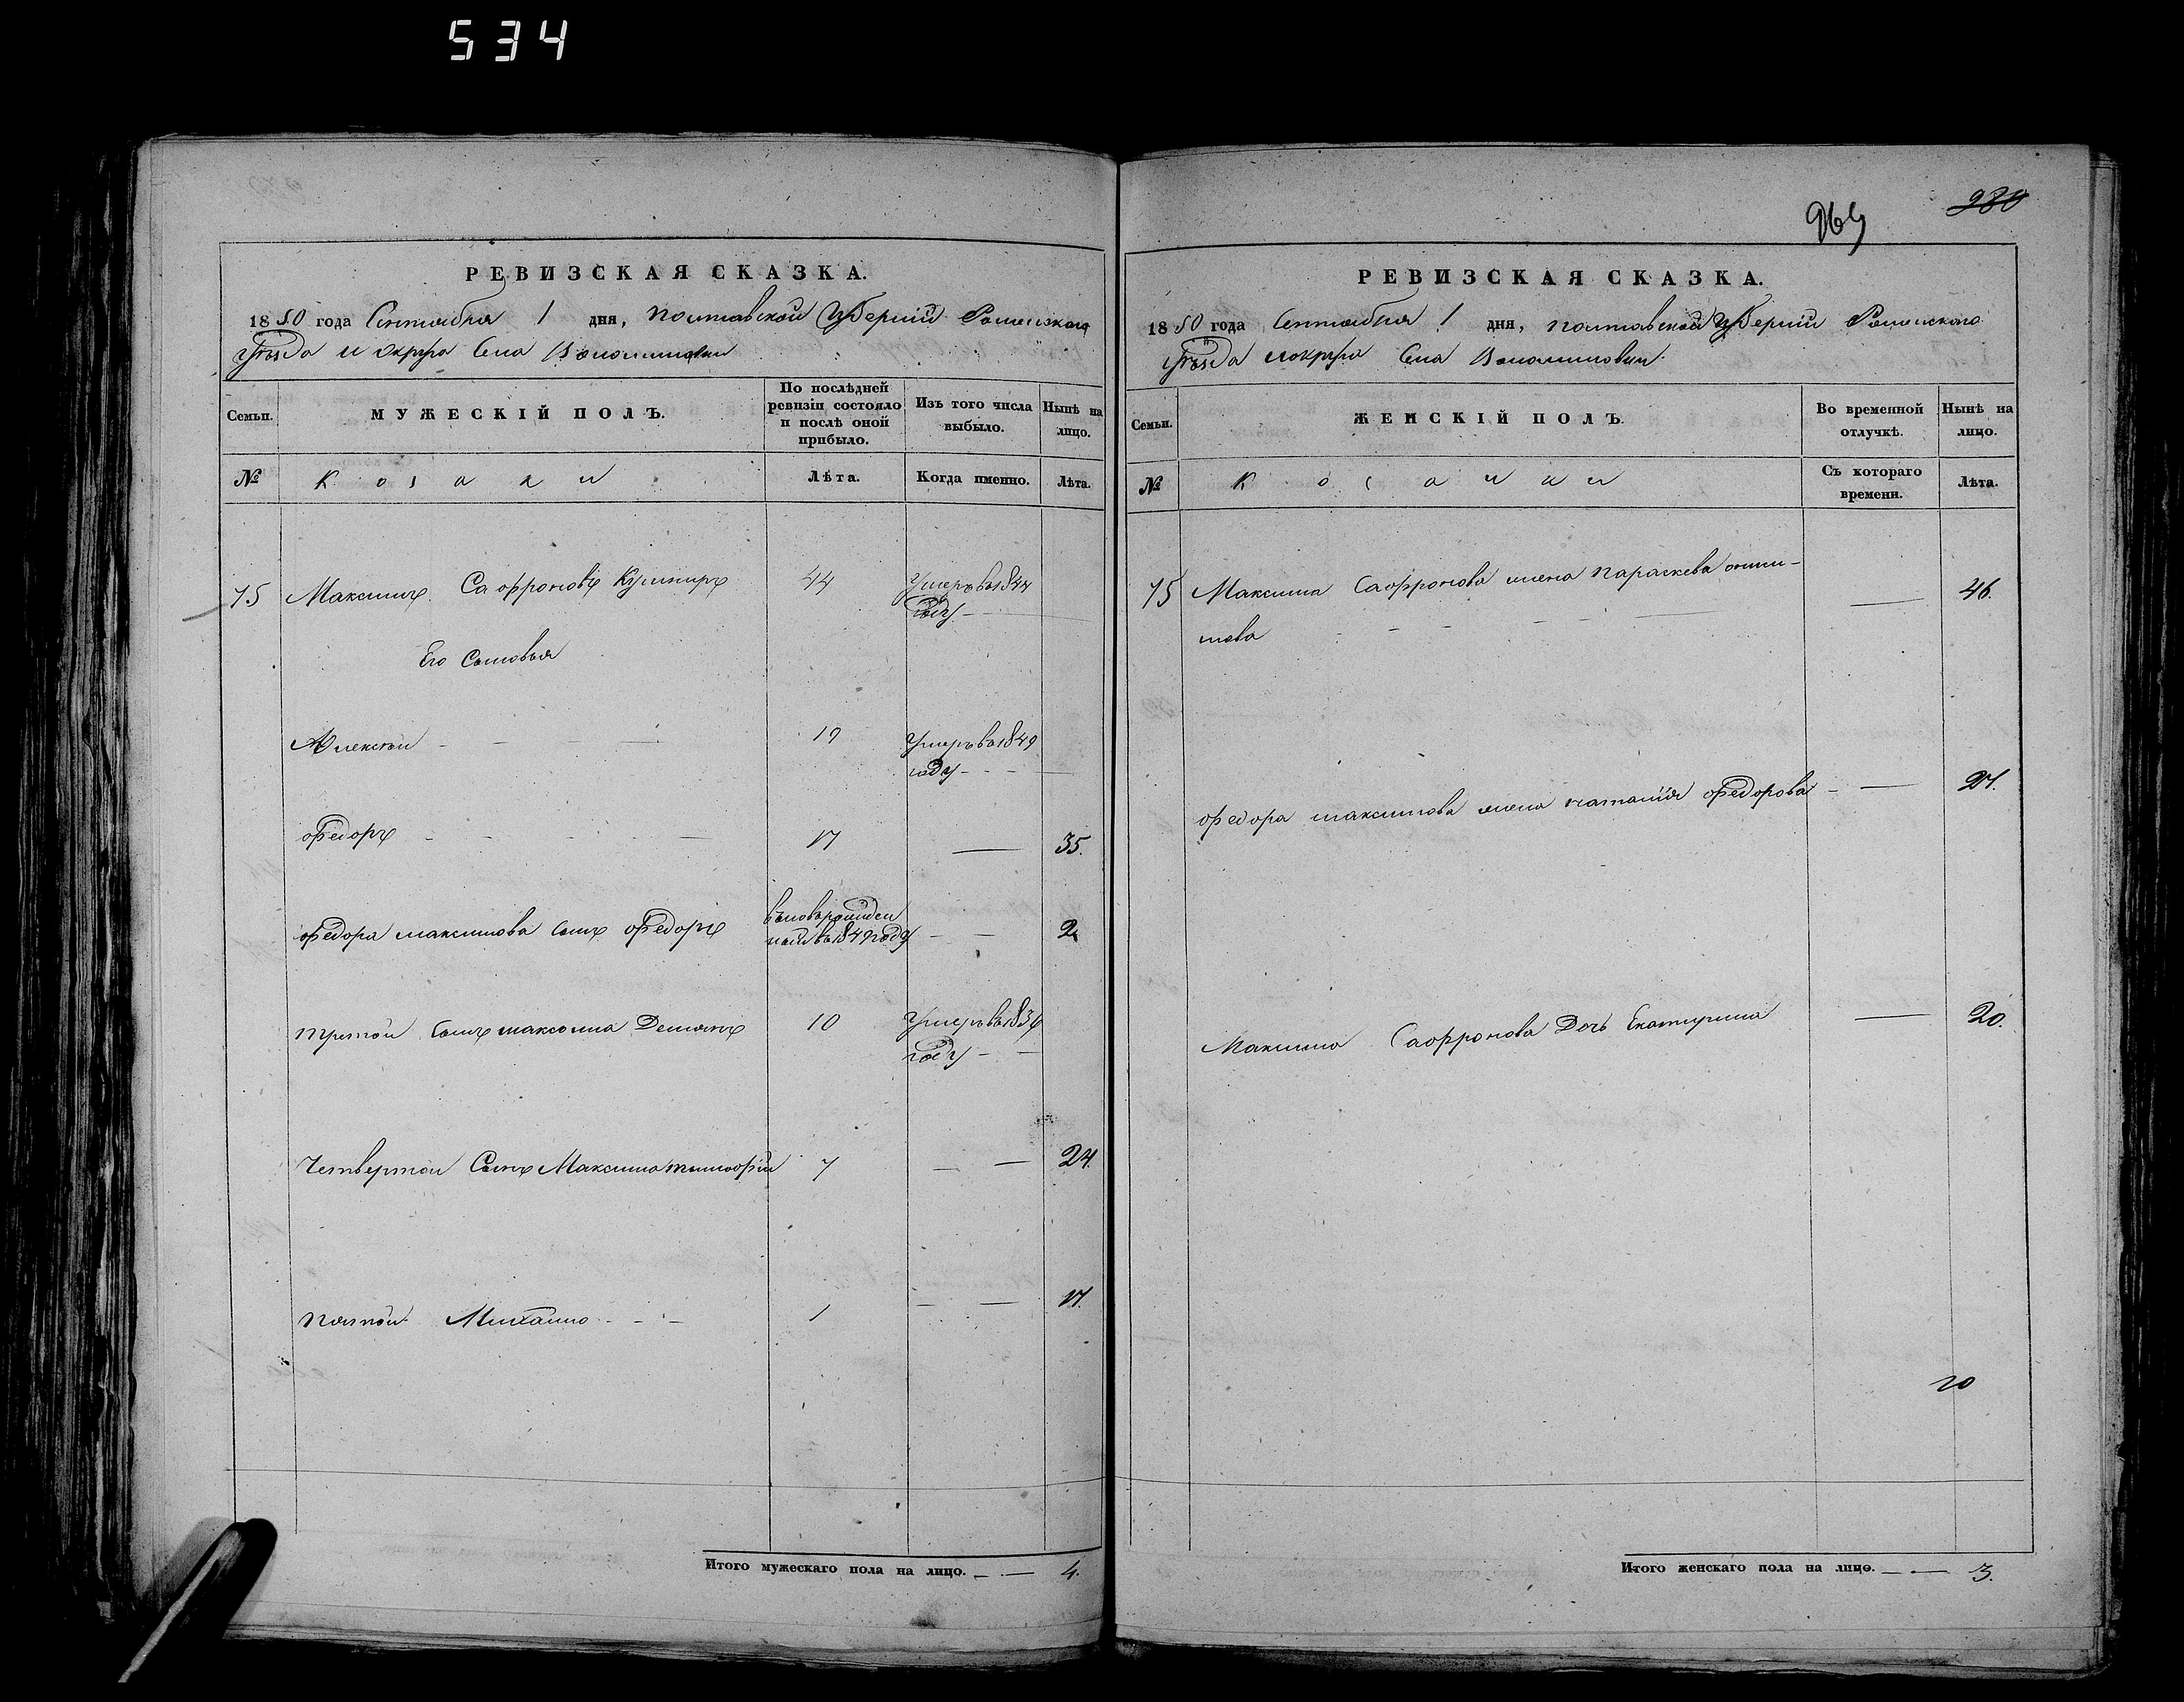 534
РЕВИЗСКАЯ СКАЗКА.
1850 года Сентября 1 дня, Полтавской Губернiи Роменского
уѣзда и округа Села
Семьи.
МУЖЕСКIЙ ПОЛЪ.
По послѣдней ревизiи состояло и послѣ оной прибыло.
Изъ того числа выбыло.
Нынѣ на лицо.
№
Козаки
Лѣта.
Когда именно.
Лѣта.
75 Максимъ Сафроновъ Кушниръ 44 Умеръ въ 1844
году
Его Сыновья
Алексѣй 19 Умеръ въ 1849
году
Федоръ 17 35.
Федора Максимова сынъ Федоръ вновьрожден
ный въ 1849 году 2
Третой сынъ Максима Демянъ 10 Умеръ въ 1836
году
Четвертой Сынъ Максима Тимофiй 7 24.
Пятой Михайло 1 17.
Итого мужескаго пола на лицо. 4.
280
РЕВИЗСКАЯ СКАЗКА.
1850 года Сентября 1 дня, Полтавской Губернiи Роменского
уѣзда и округа Села
Семьи.
ЖЕНСКIЙ ПОЛЪ.
Во временной отлучкѣ.
Нынѣ на лицо.
№
Козачки
Съ котораго времени.
Лѣта.
75 Максима Сафронова жена Параскева 46.
Федора Максимова жена Наталiя Федорова 27.
Максима Сафронова Дочь Екатерина 20.
20
Итого женскаго пола на лицо. 3.